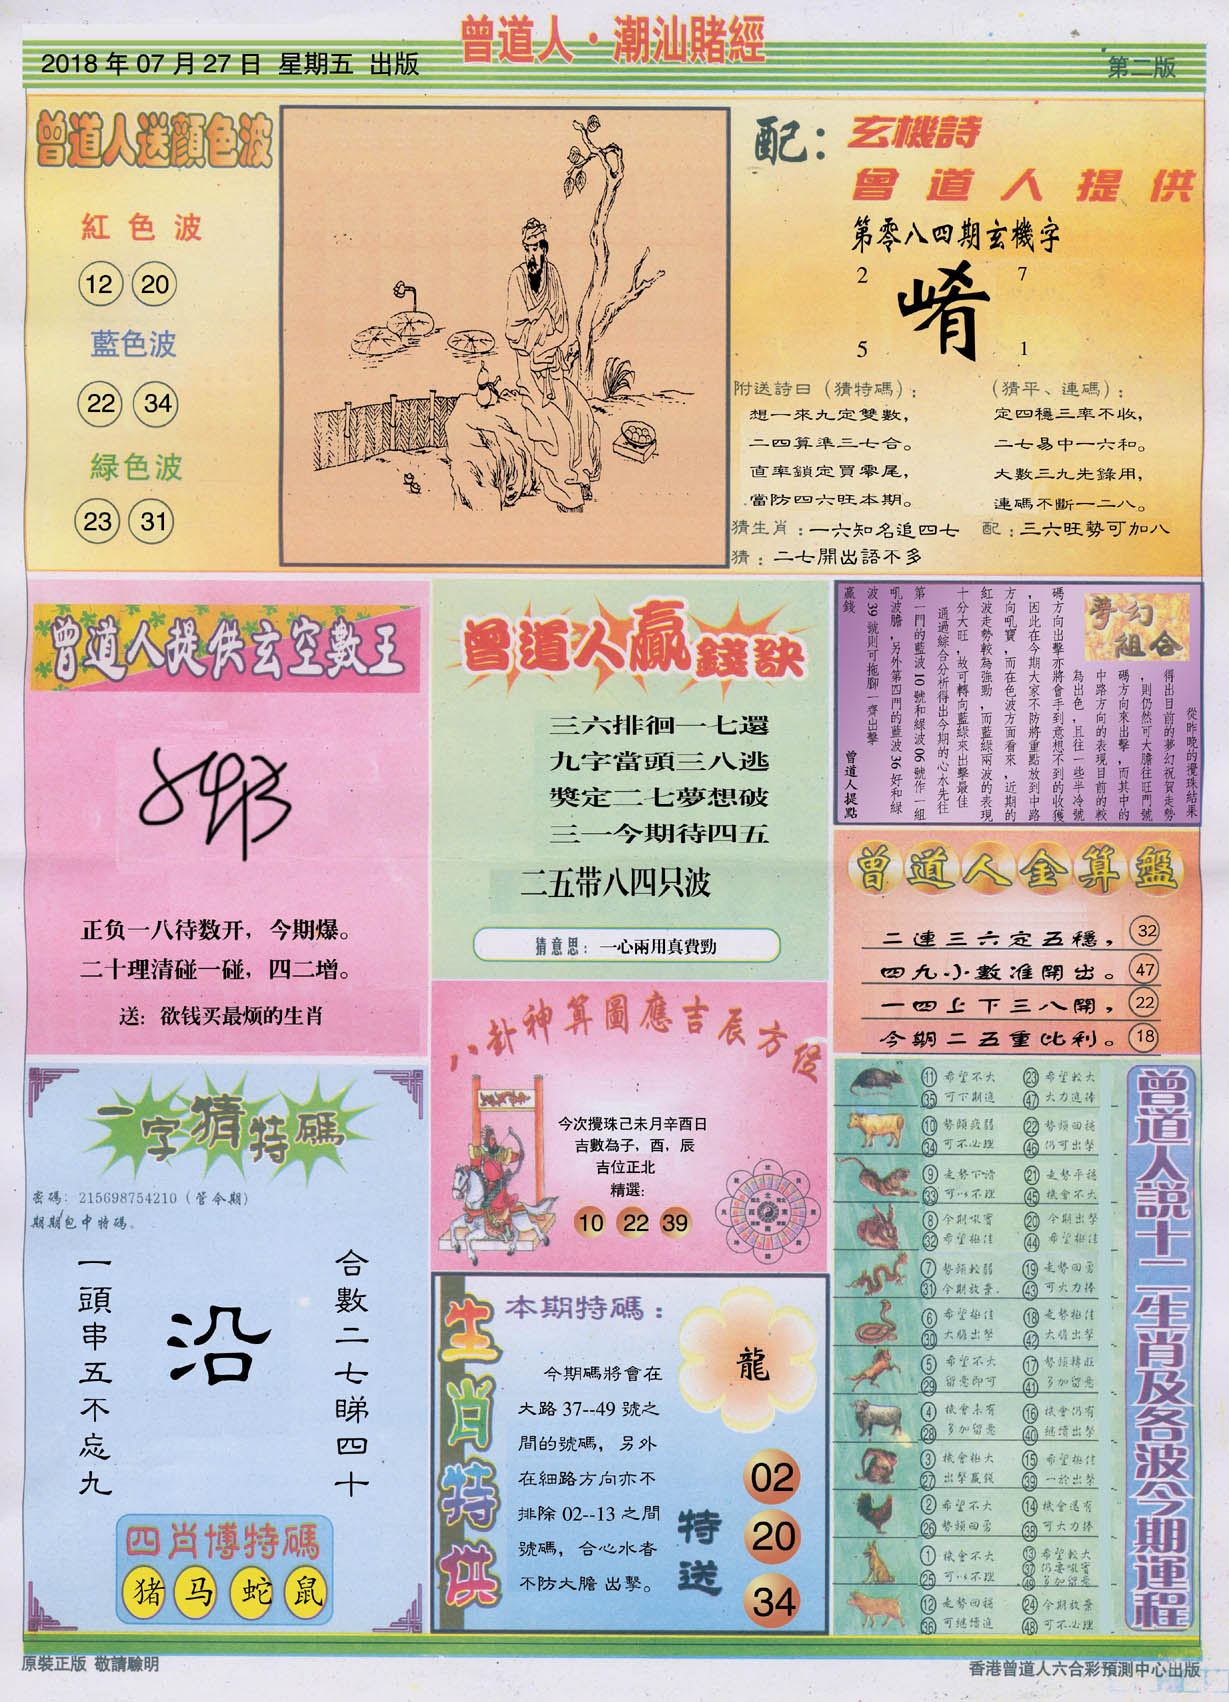 曾道人·潮汕賭經
2018 年 07 月 27 日 星期五 出版
第二版
曾道人送顏色波
紅色波
12 20
藍色波
22 34
緑色波
23 31
配：
玄機詩
曾道人提供
第零八四期玄機字
2 7
崤
5 1
附送詩曰（猜特碼）：
想一來九定雙數，
二四算準三七合。
直率鎖定買零尾，
當防四六旺本期。
（猜平、連碼）：
定四穩三率不收，
二七易中一六和。
大數三九先錄用，
連碼不斷一二八。
猜生肖：一六知名追四七
配：三六旺勢可加八
猜：二七開出語不多
曾道人提供玄空數王
正负一八待数开，今期爆。
二十理清碰一碰，四二增。
送：欲钱买最烦的生肖
曾道人贏錢訣
三六排徊一七還
九字當頭三八逃
獎定二七夢想破
三一今期待四五
二五带八四只波
猜意思：一心兩用真費勁
夢幻組合
從昨晚的攪珠結果
得出目前的夢幻祝賀走勢
，則仍然可大膽往旺門號
碼方向來出擊，而其中的
中路方向的表現目前的較
為出色，且往一些半冷號
碼方向出擊亦將會手到意想不到的收獲
，因此在今期大家不防將重點放到中路
方向吼寶，而在色波方面看來，近期的
紅波走勢較為強勁，而藍綠兩波的表現
十分大旺，故可轉向藍綠來出擊最佳
通過綜合分析得出今期的心水先往
第一門的藍波 10 號和綠波 06 號作一組
吼波膽，另外第四門的藍波 36 好和綠
波 39 號則可拖腳一齊出擊
贏錢
曾道人提點
曾道人金算盤
二連三六定五穩， 32
四九小數准開出。 47
一四上下三八開， 22
今期二五重比利。 18
八卦神算圖應吉辰方位
今次攪珠己未月辛酉日
吉數為子，酉，辰
吉位正北
精選：
10 22 39
一字猜特碼
密碼：215698754210（管令期）
期期包中特碼。
合數二七睇四十
沿
一頭串五不忘九
四肖博特碼
猪 马 蛇 鼠
生肖特供
本期特碼：
龍
今期碼將會在
大路 37--49 號之
間的號碼，另外
在細路方向亦不
排除 02--13 之間
號碼，合心水者
不防大膽 出擊。
特送
02
20
34
曾道人說十二生肖及各波今期運程
11 希望不大 23 希望較大
35 可下期進 47 大力進捧
10 勢頭疲弱 22 勢頭回穩
34 可不必理 46 仍可出擊
9 走勢下滑 21 走勢平穩
33 可以不理 45 機會不大
8 今期吼寶 20 今期出擊
32 希望極佳 44 希望極佳
7 勢頭較弱 19 走勢回勇
31 今期放棄. 43 可大力捧
6 希望極佳 18 走勢極佳
30 大膽出擊 42 大膽出擊
5 希望不大 17 勢頭轉旺
29 留意即可 41 多加留意
4 機會未有 16 機會仍有
28 多加留意 40 繼續出擊
3 機會極大 15 希望極佳
27 出擊贏錢 39 一於出擊
2 希望不大 14 機會還有
26 勢頭回勇 38 可大力捧
1 機會不大 13 希望較大
37 仍要吼寶
25 可以不理 49 多加留意
12 走勢回穩 24 今期放棄
36 可繼續進 48 可不必理
原裝正版 敬請驗明
香港曾道人六合彩預測中心出版